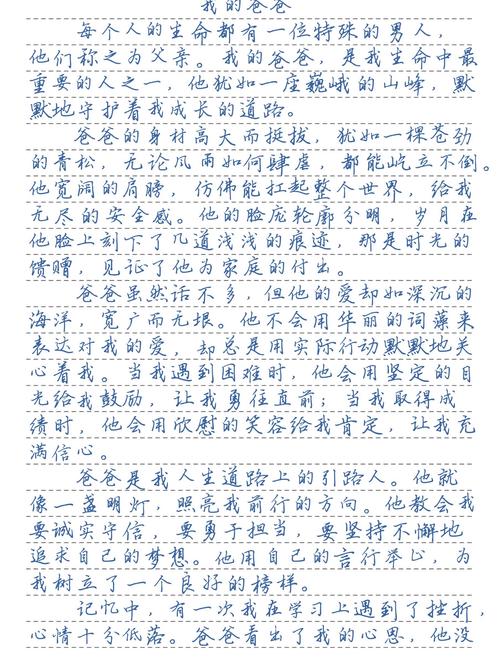 我的爸爸
每个人的生命都有一位特殊的男人，
他们称之为父亲。我的爸爸，是我生命中最
重要的人之一，他犹如一座巍峨的山峰，默
默地守护着我成长的道路。
爸爸的身材高大而挺拔，犹如一棵苍劲
的青松，无论风雨如何肆虐，都能屹立不倒。
他宽阔的肩膀，仿佛能扛起整个世界，给我
无尽的安全感。他的脸庞轮廓分明，岁月在
他脸上刻下了几道浅浅的痕迹，那是时光的
馈赠，见证了他为家庭的付出。
爸爸虽然话不多，但他的爱却如深沉的
海洋，宽广而无垠。他不会用华丽的词藻来
表达对我的爱，却总是用实际行动默默地关
心着我。当我遇到困难时，他会用坚定的目
光给我鼓励，让我勇往直前；当我取得成
绩时，他会用欣慰的笑容给我肯定，让我充
满信心。
爸爸是我人生道路上的引路人。他就
像一盏明灯，照亮我前行的方向。他教会我
要诚实守信，要勇于担当，要坚持不懈地
追求自己的梦想。他用自己的言行举止，为
我树立了一个良好的榜样。
记忆中，有一次我在学习上遇到了挫折，
心情十分低落。爸爸看出了我的心思，他没